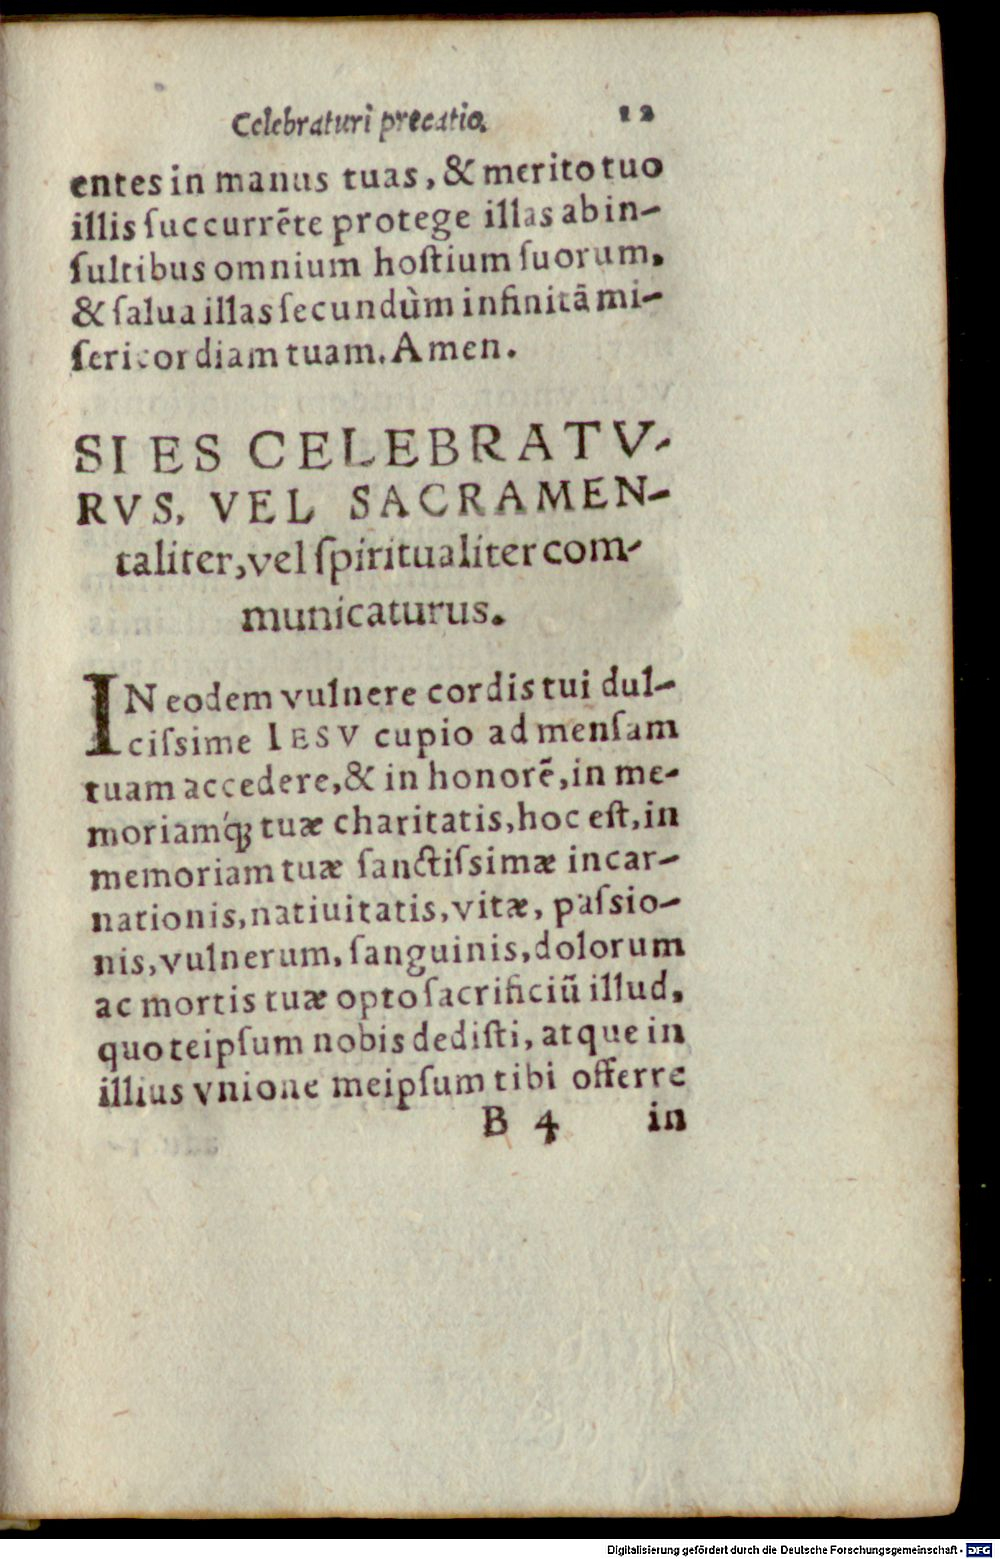 Celebraturi precatio. 12
entes in manus tuas, & merito tuo
illis ſuccurrẽte protege illas ab in-
ſultibus omnium hoſtium ſuorum,
& ſalua illas ſecundùm infinitã mi-
ſericordiam tuam. Amen.
SI ES CELEBRATV-
RVS, VEL SACRAMEN-
taliter, vel ſpiritualiter com-
municaturus.
IN eodem vulnere cordis tui dul-
ciſsime IESV cupio ad menſam
tuam accedere, & in honorẽ, in me-
moriamq́ꝫ tuæ charitatis, hoc eſt, in
memoriam tuæ ſanctiſsimæ incar-
nationis, natiuitatis, vitæ, paſsio-
nis, vulnerum, ſanguinis, dolorum
ac mortis tuæ opto ſacrificiũ illud,
quo teipſum nobis dediſti, atque in
illius vnione meipſum tibi offerre
B 4 in
Digitalisierung gefördert durch die Deutsche Forschungsgemeinschaft - DFG